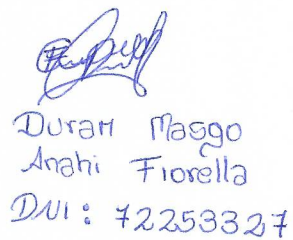 Duran Masgo
Anahi Fiorella
DNI: 72253327